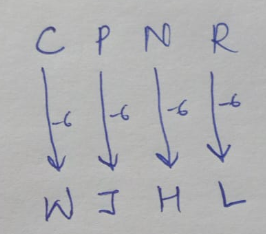 C P N R
-6 -6 -6 -6
W J H L